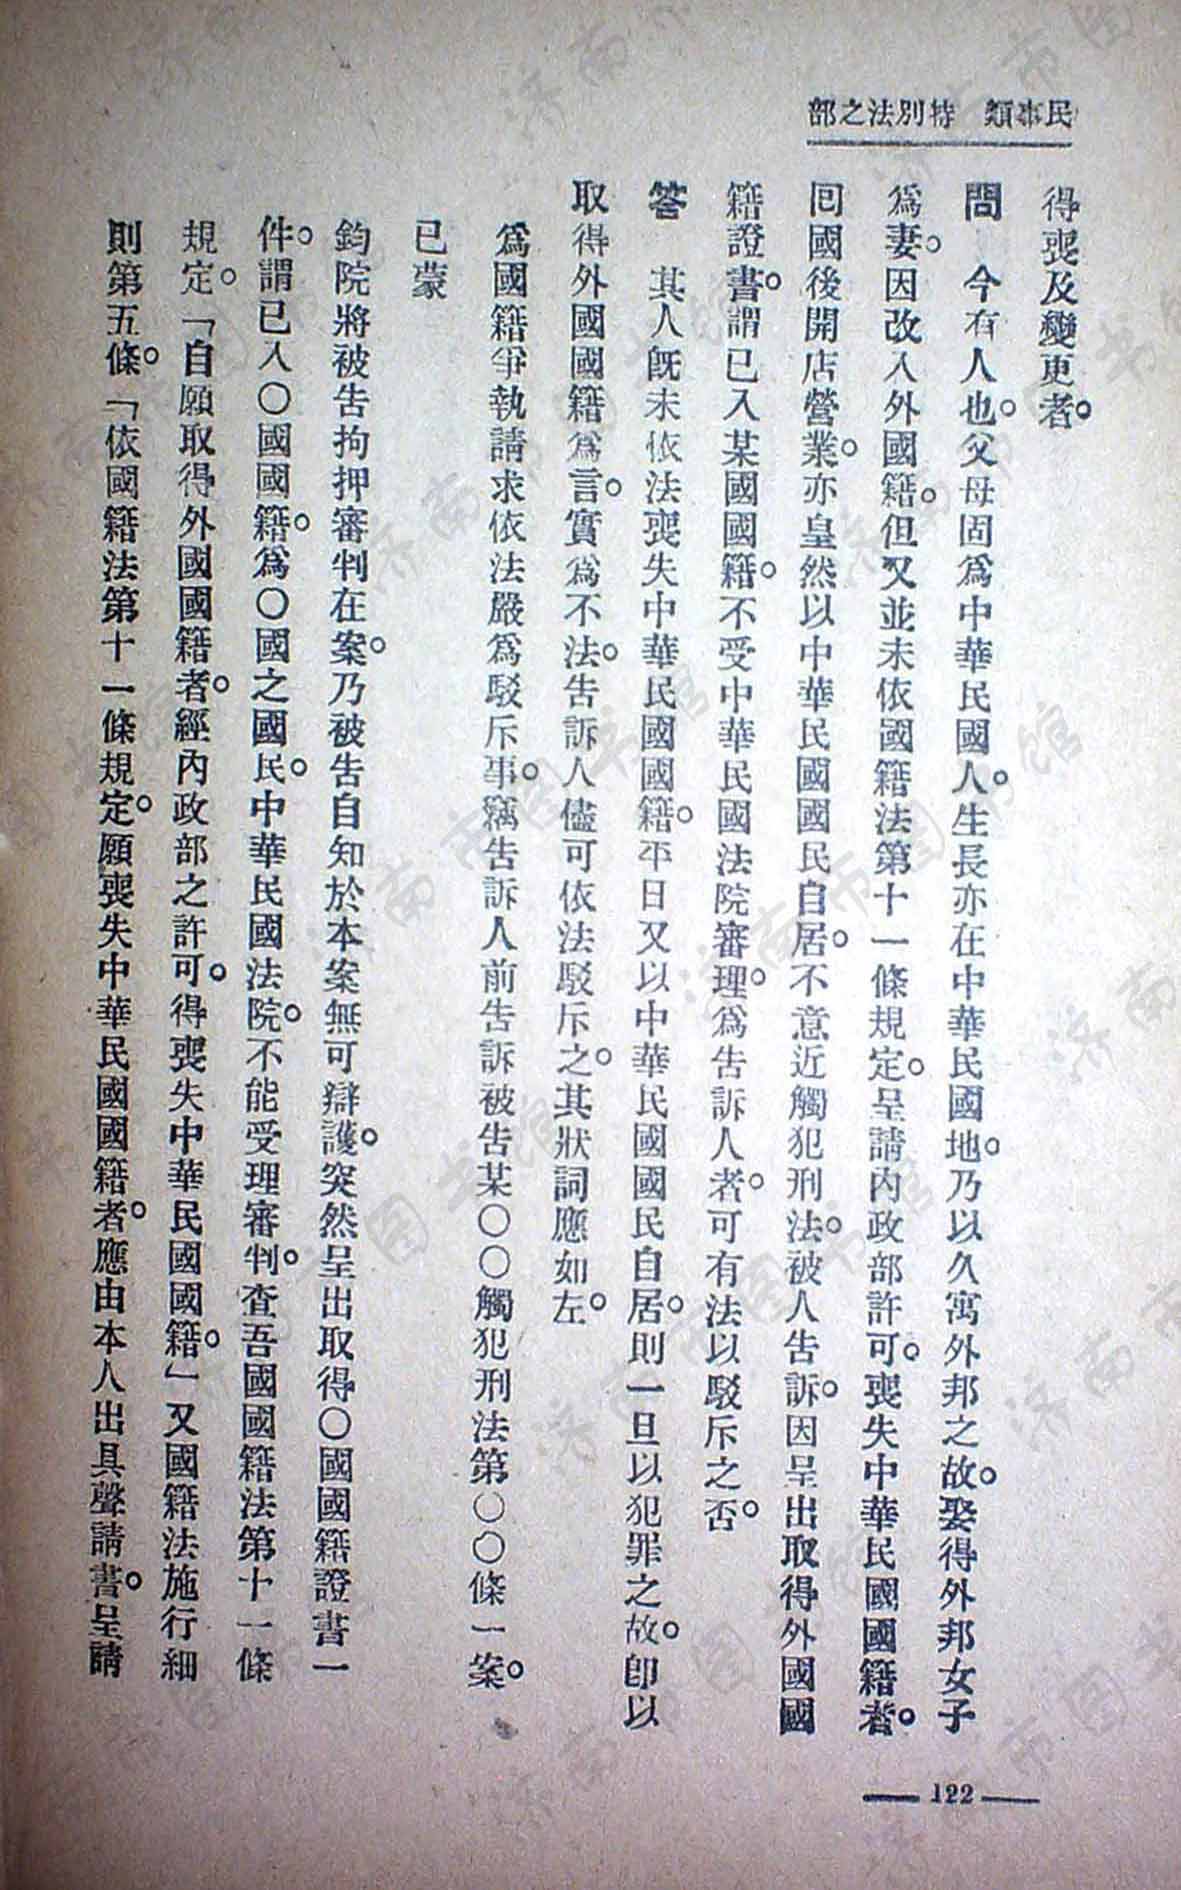 民事類　特別法之部
得喪及變更者。
問　今有人也。父母固爲中華民國人。生長亦在中華民國地。乃以久寓外邦之故。娶得外邦女子
爲妻。因改入外國籍。但又並未依國籍法第十一條規定。呈請內政部許可。喪失中華民國國籍者。
回國後開店營業。亦皇然以中華民國國民自居。不意近觸犯刑法。被人告訴。因呈出取得外國國
籍證書。謂已入某國國籍。不受中華民國法院審理。爲告訴人者。可有法以駁斥之否。
答　其人旣未依法喪失中華民國國籍。平日又以中華民國國民自居。則一旦以犯罪之故。卽以
取得外國國籍爲言。實爲不法。告訴人儘可依法駁斥之。其狀詞應如左。
爲國籍爭執請求依法嚴爲駁斥事。竊告訴人前告訴被告某〇〇觸犯刑法第〇〇條一案。
已蒙
鈞院將被告拘押審判在案。乃被告自知於本案無可辯護。突然呈出取得〇國國籍證書一
件。謂已入〇國國籍。爲〇國之國民。中華民國法院。不能受理審判。查吾國國籍法第十一條
規定。「自願取得外國國籍者。經內政部之許可。得喪失中華民國國籍。」又國籍法施行細
則第五條。「依國籍法第十一條規定。願喪失中華民國國籍者。應由本人出具聲請書。呈請
122
济南市图书馆